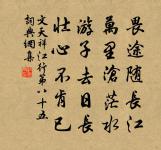 畏途隨長江
萬里滄茫水
游子去日長
壯心不肯已
文天祥江行第八十五
詞典網集